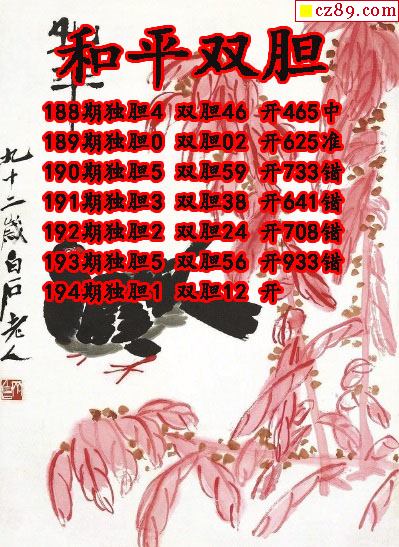 cz89.com
和平双胆
188期独胆4 双胆46 开465中
189期独胆0 双胆02 开625准
190期独胆5 双胆59 开733错
191期独胆3 双胆38 开641错
192期独胆2 双胆24 开708错
193期独胆5 双胆56 开933错
194期独胆1 双胆12 开
九十二岁白石老人